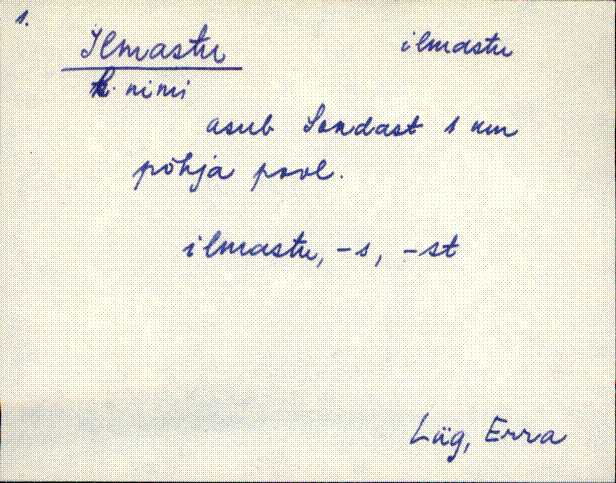 1.
Ilmastu ilmastu
k. nimi
asub Sondast 1 km
põhja pool.
ilmastu, -s, -st
Lüg, Erra